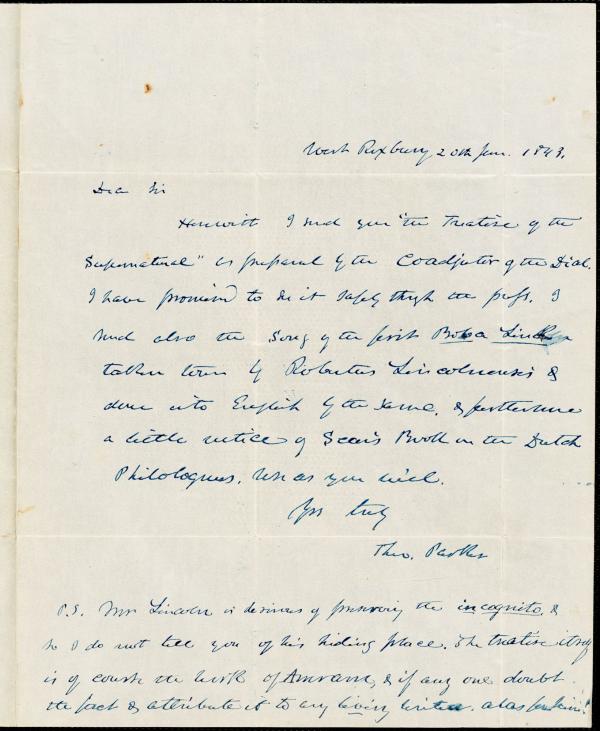 West Roxbury 20th Jan. 1843.
Dear Sir
Herewith I send you "the Treatise of the
Supernatural" as prepared by the Coadjutor of the Dial.
I have promised to see it safely through the press. I
send also the Song of the first Boba Lincoln
taken down by Robertus Lincolnensis &
done into English by the same, & furthermore
a little notice of Sears Book on the Dutch
Philologues. Use as you will.
Yrs truly
Theo. Parker
P.S. Mr Lincoln is desirous of preserving the incognito, &
so I do not tell you of his hiding place. The treatise itself
is of course the work of & if any one doubt
the fact & attribute it to any living writer. alas for him!